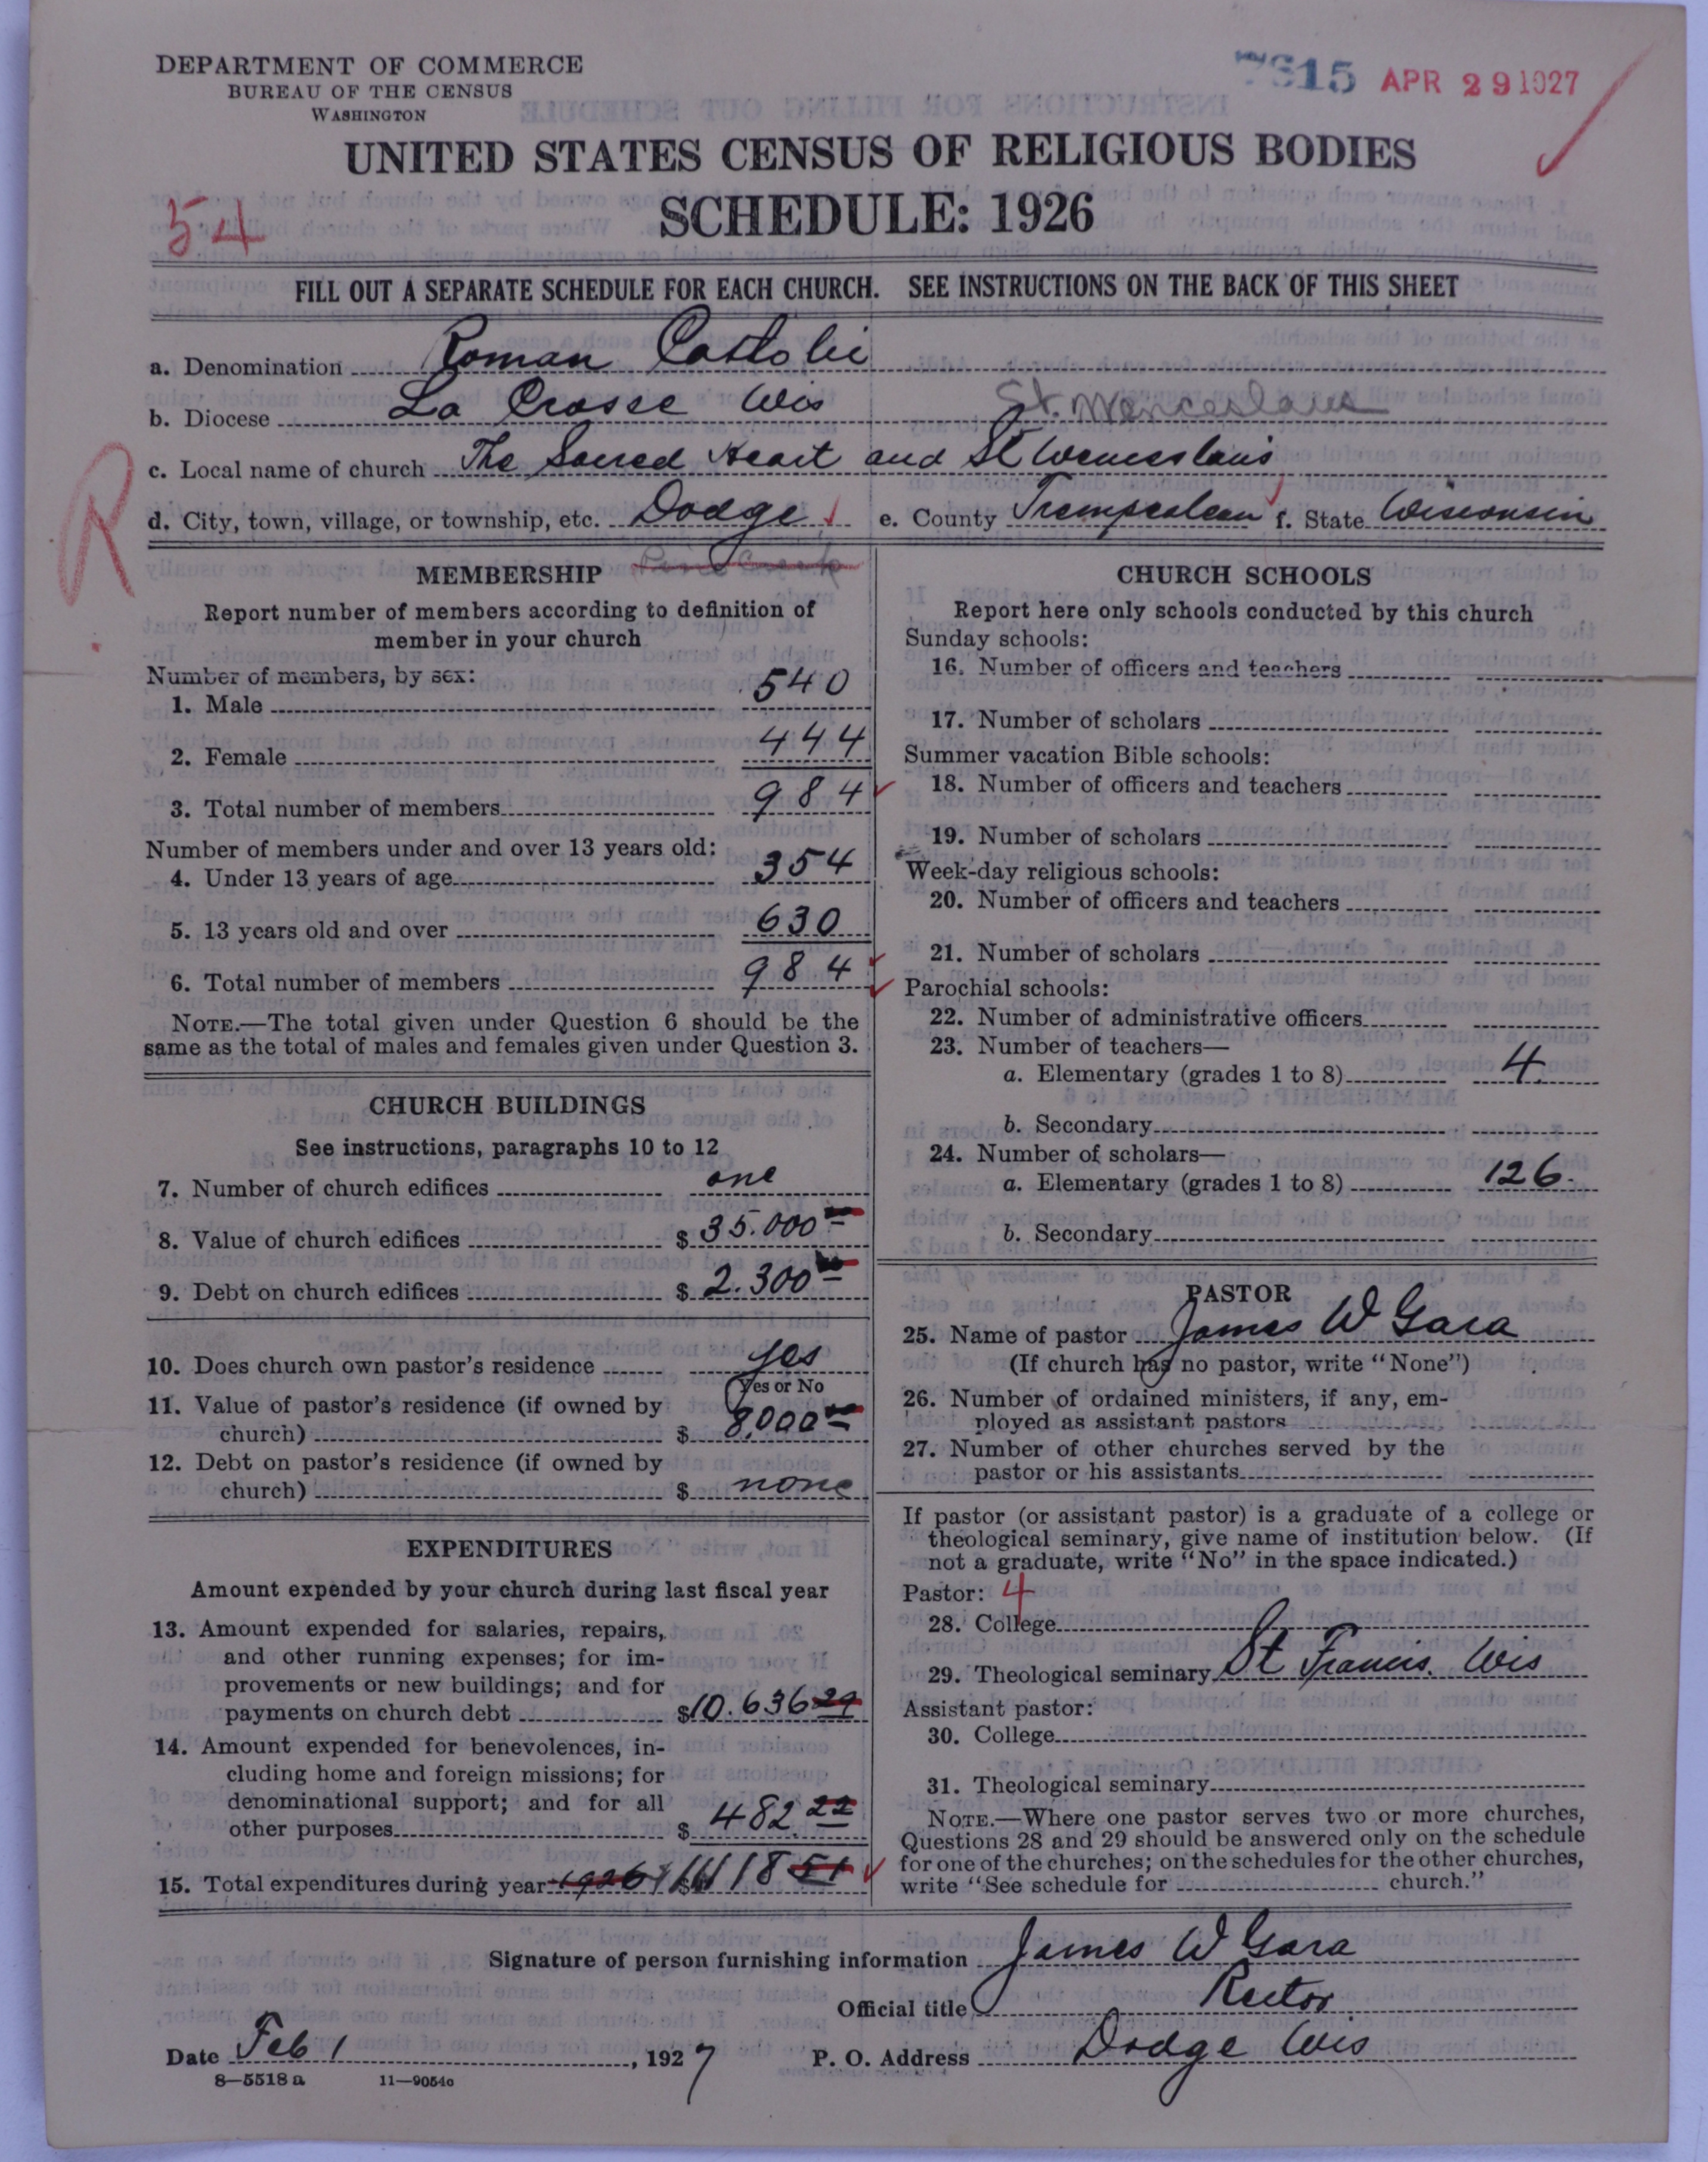 DEPARTMENT OF COMMERCE
BUREAU OF THE CENSUS
WASHINGTON
7615 APR 29 1927
UNITED STATES CENSUS OF RELIGIOUS BODIES
SCHEDULE: 1926
54
FILL OUT A SEPARATE SCHEDULE FOR EACH CHURCH. SEE INSTRUCTIONS ON THE BACK OF THIS SHEET
a. Denomination Roman Catholic
b. Diocese La Crosse Wis St. Wenceslaus
c. Local name of church The Sacred Heart and St Wenceslaus
R
d. City, town, village, or township, etc. Dodge e. County Trempealeau f. State Wisconsin
Pine Creek
MEMBERSHIP
Report number of members according to definition of
member in your church
Number of members, by sex:
1. Male 540
2. Female 444
3. Total number of members 984
Number of members under and over 13 years old:
4. Under 13 years of age 354
5. 13 years old and over 630
6. Total number of members 984
NOTE.—The total given under Question 6 should be the
same as the total of males and females given under Question 3.
CHURCH BUILDINGS
See instructions, paragraphs 10 to 12
7. Number of church edifices one
8. Value of church edifices $ 35.000
9. Debt on church edifices $ 2.300
10. Does church own pastor's residence yes
Yes or No
11. Value of pastor's residence (if owned by
church) $ 8,000
12. Debt on pastor's residence (if owned by
church) $ none
EXPENDITURES
Amount expended by your church during last fiscal year
13. Amount expended for salaries, repairs,
and other running expenses; for im-
provements or new buildings; and for
payments on church debt $10.636 29
14. Amount expended for benevolences, in-
cluding home and foreign missions; for
denominational support; and for all
other purposes $ 482.22
15. Total expenditures during year 1926 $ 11118 51
CHURCH SCHOOLS
Report here only schools conducted by this church
Sunday schools:
16. Number of officers and teachers
17. Number of scholars
Summer vacation Bible schools:
18. Number of officers and teachers
19. Number of scholars
Week-day religious schools:
20. Number of officers and teachers
21. Number of scholars
Parochial schools:
22. Number of administrative officers
23. Number of teachers—
a. Elementary (grades 1 to 8) 4
b. Secondary
24. Number of scholars—
a. Elementary (grades 1 to 8) 126
b. Secondary
PASTOR
25. Name of pastor James W Gara
(If church has no pastor, write "None")
26. Number of ordained ministers, if any, em-
ployed as assistant pastors
27. Number of other churches served by the
pastor or his assistants
If pastor (or assistant pastor) is a graduate of a college or
theological seminary, give name of institution below. (If
not a graduate, write "No" in the space indicated.)
Pastor: 4
28. College
29. Theological seminary St Francis. Wis
Assistant pastor:
30. College
31. Theological seminary
NOTE.—Where one pastor serves two or more churches,
Questions 28 and 29 should be answered only on the schedule
for one of the churches; on the schedules for the other churches,
write "See schedule for church."
Signature of person furnishing information James W Gara
Official title Rector
Date Feb 1, 1927 P. O. Address Dodge Wis
8—5518 a 11—9054c